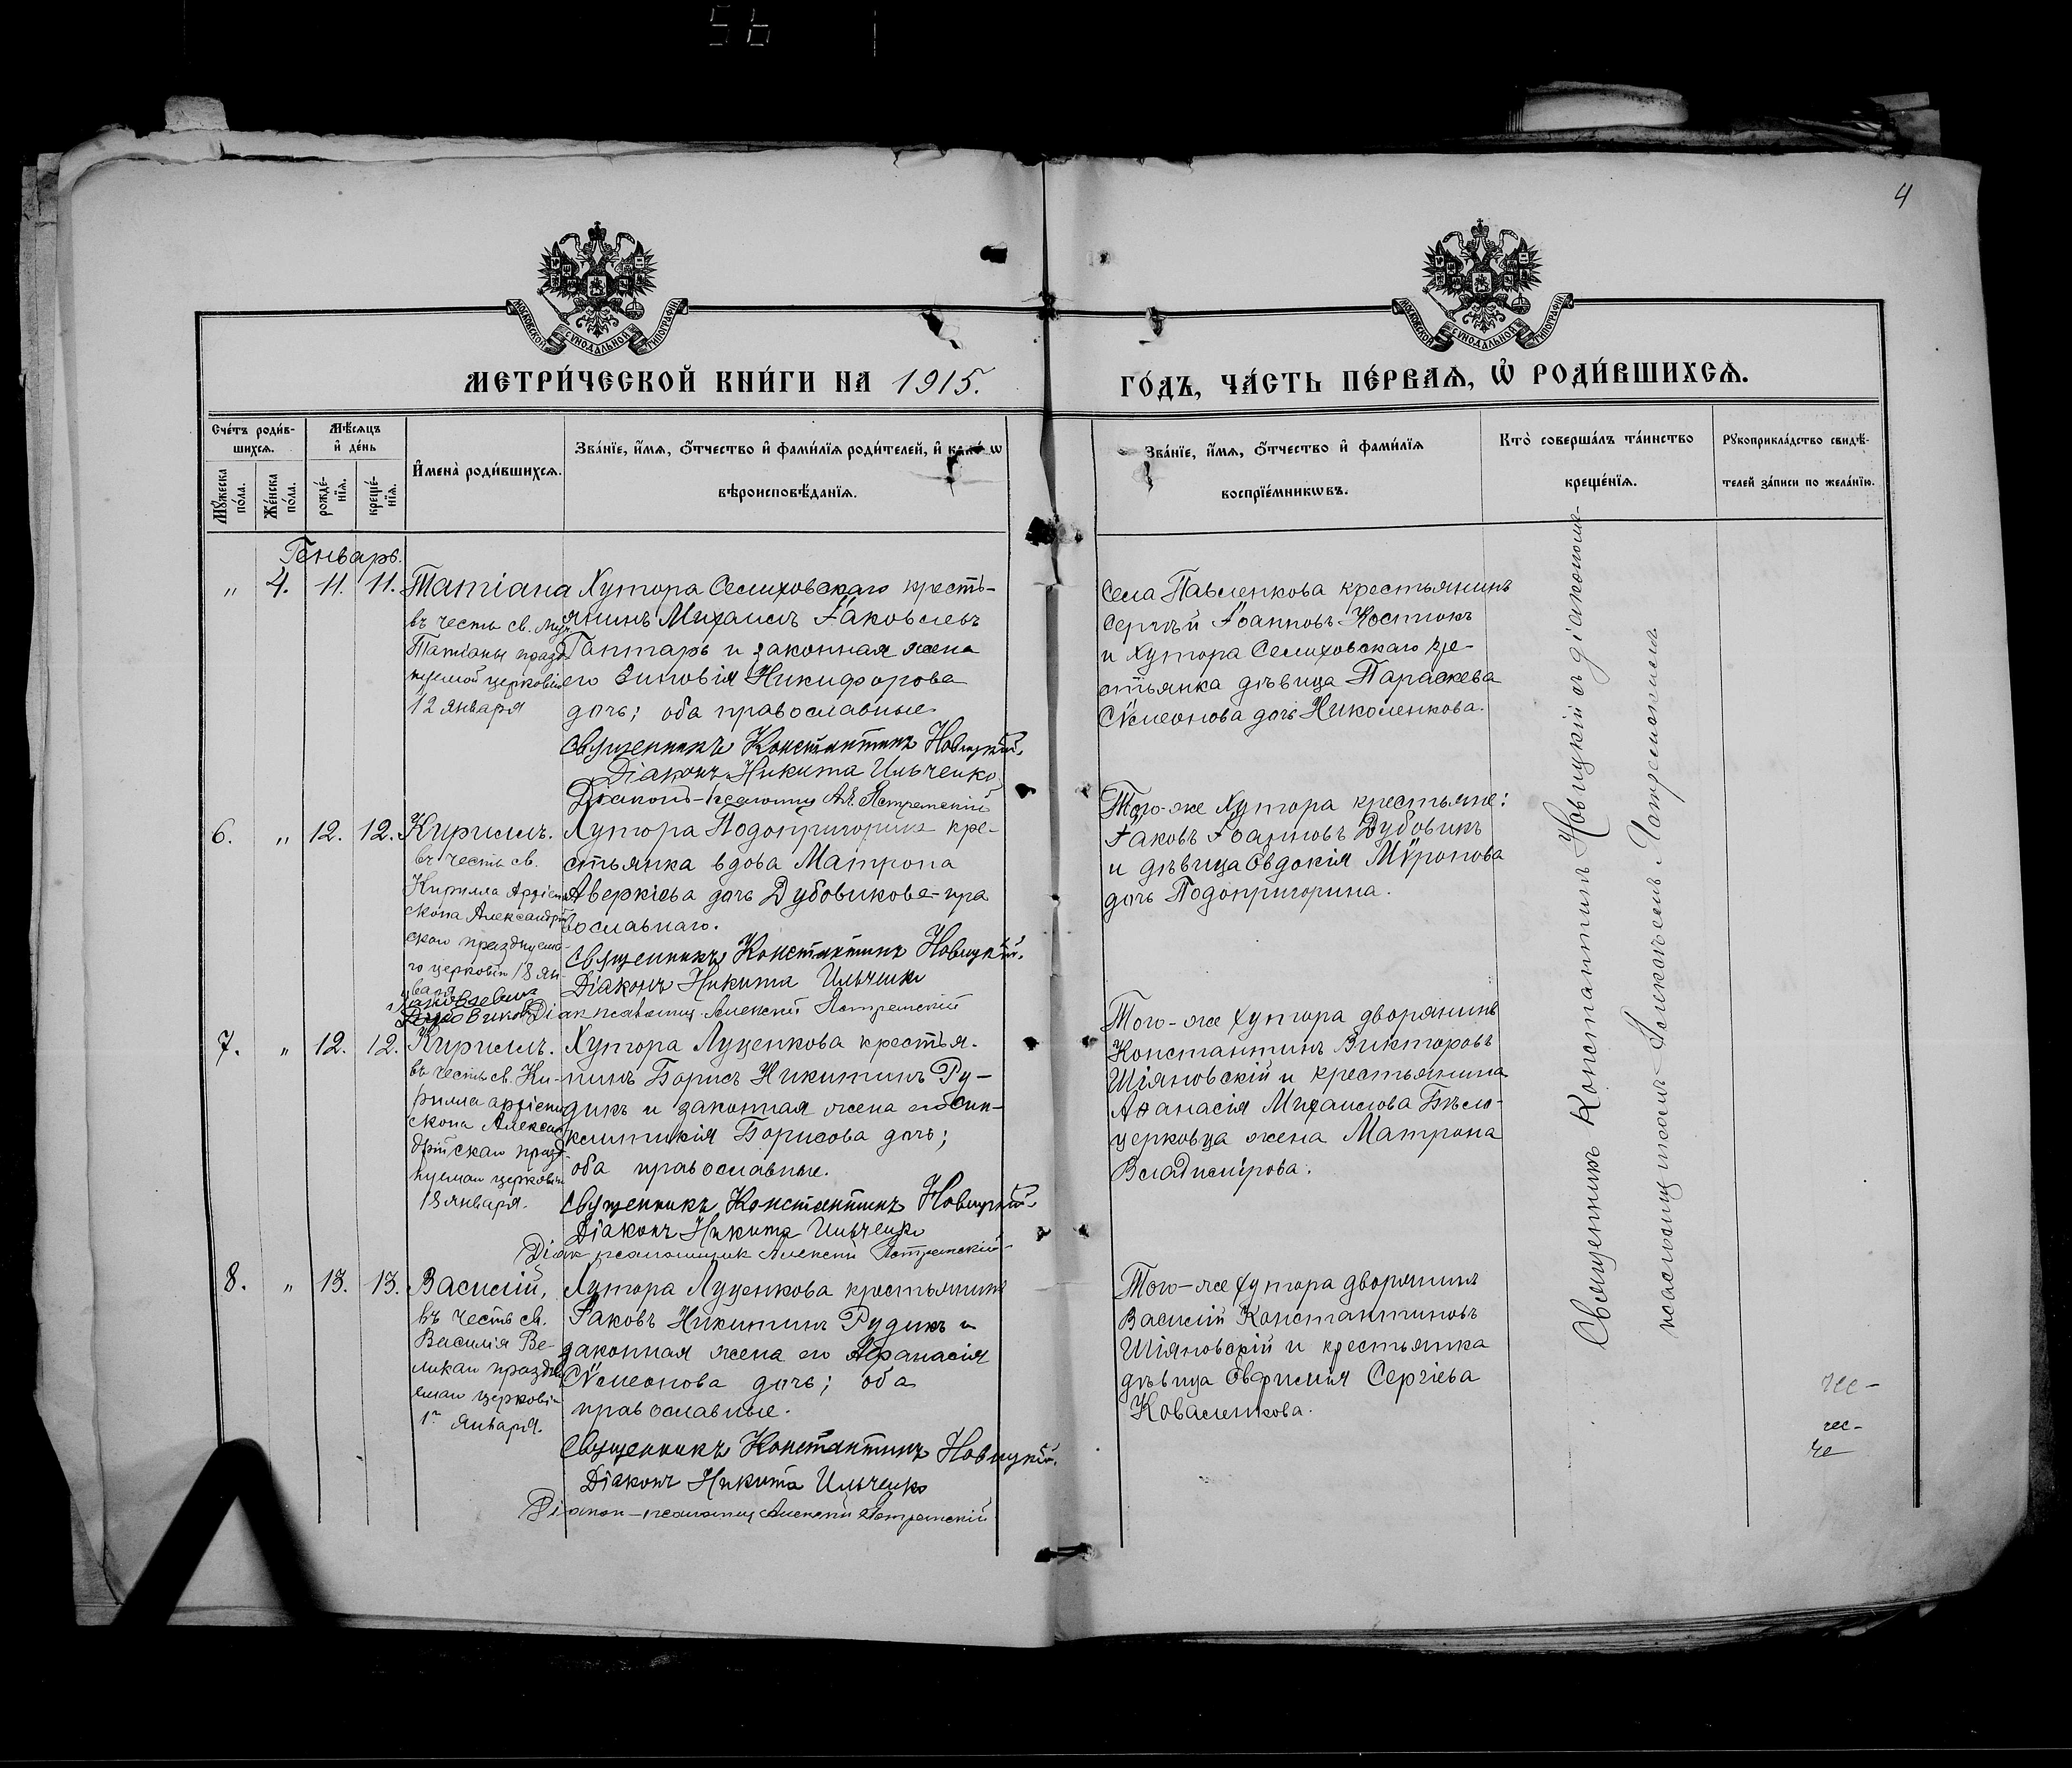 56
4
МОСКОВСКОЙ СѴНОДАЛЬНОЙ ТИПОГРАФІИ
МОСКОВСКОЙ СѴНОДАЛЬНОЙ ТИПОГРАФІИ
МЕТРИ́ЧЕСКОЙ КНИ́ГИ НА 1915.
ГО́ДЪ, ЧА́СТЬ ПЕ́РВАѦ, Ѽ РОДИ́ВШИХСѦ.
Сче́тъ роди́в-
шихсѧ.
Мꙋ́жеска по́ла.
Же́нска по́ла.
Мѣ́сѧцъ
и҆ де́нь
рожде́-
нїѧ.
креще́-
нїѧ.
И҆мена̀ роди́вшихсѧ.
Зва́нїе, и҆́мѧ, ѻ҆́тчество и҆ фами́лїѧ роди́телей, и҆ како́гѡ
вѣроисповѣ́данїѧ.
Зва́нїе, и҆́мѧ, ѻ҆́тчество и҆ фами́лїѧ
воспрїе́мникѡвъ.
Кто̀ соверша́лъ та́инство
креще́нїѧ.
Рꙋкоприкла́дство свидѣ́-
телей за́писи по жела́нїю.
Генварь.
" 4. 11. 11. Татіана
въ честь св. муч.
Татіаны празд-
нуемой церковію
12 января
Хутора Селиховскаго кресть-
янинъ Михаилъ Іаковлевъ
Гаптарь и законная жена
его Зиновія Никифорова
дочь; оба православные.
Священникъ Константинъ Новицкій.
Діаконъ Никита Ильченко
Діаконъ-псаломщ Ал. Ястремскій
Села Павленкова крестьянинъ
Сергѣй Іоанновъ Костюкъ
и хутора Селиховскаго кре-
стьянка дѣвица Параскева
Сѵмеонова дочь Николенкова.
6. " 12. 12. Кириллъ.
въ честь св.
Кирилла Архіепи
скопа Александрій
скаго празднуемо-
го церковію 18 ян-
варя
Яковлевича
Дубовикова
Хутора Подопригорина кре-
стьянка вдова Матрона
Аверкіева дочь Дубовикова-пра
вославнаго.
Священникъ Константинъ Новицкій.
Діаконъ Никита Ильченко
Діак псаломщ. Алексій Ястремскій
Того-же хутора крестьяне:
Іаковъ Іоанновъ Дубовикъ
и дѣвица Евдокія Мѵронова
дочь Подопригорина.
7. " 12. 12. Кириллъ.
въ честь св. Ки-
рилла архіепи
скопа Алексан
дрійскаго празд-
нуемаго церковію
18 января.
Хутора Луценкова крестья-
нинъ Борисъ Никитинъ Ру-
дикъ и законная жена его Син-
клитикія Борисова дочь;
оба православные.
Священникъ Константинъ Новицкій.
Діаконъ Никита Ильченко
Діак псаломщик Алексій Ястремскій
Того-же хутора дворянинъ
Константинъ Викторовъ
Шіяновскій и крестьянина
Аѳанасія Михаилова Бѣло-
церковца жена Матрона
Владимірова.
8. " 13. 13. Василій,
въ честь св.
Василія Ве-
ликаго праздну
емаго церковію
1го января.
Хутора Луценкова крестьянинъ
Іаковъ Никитинъ Рудикъ и
законная жена его Афанасія
Сѵмеонова дочь; оба
православные.
Священникъ Константинъ Новицкій.
Діаконъ Никита Ильченко
Діакон-псаломщ Алексій Ястремскій
Того-же хутора дворянинъ
Василій Константиновъ
Шіяновскій и крестьянка
дѣвица Евфимія Сергіева
Коваленкова.
Священникъ Константинъ Новицкій съ діакономъ-
псаломщикомъ Алексѣемъ Ястремскимъ